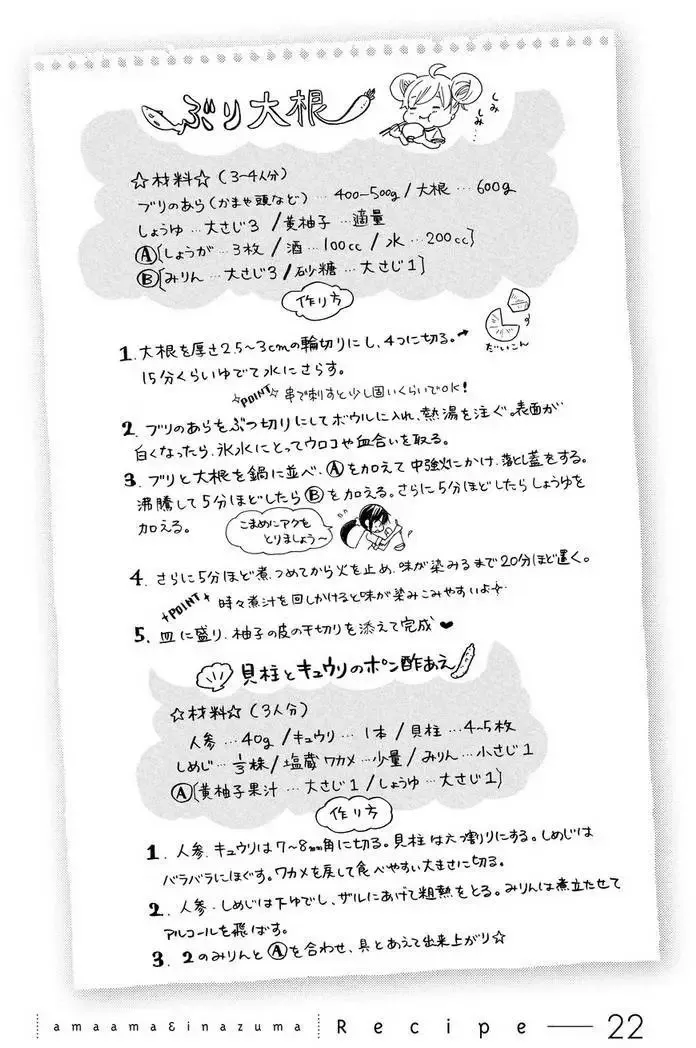 ぶり大根
しみ
しみ…
☆材料☆ (3~4人分)
ブリのあら(かまや頭など)…400~500g / 大根…600g
しょうゆ…大さじ3 / 黄柚子…適量
Ⓐ[しょうが…3枚 / 酒…100cc / 水…200cc]
Ⓑ[みりん…大さじ3 / 砂糖…大さじ1]
作り方
1. 大根を厚さ2.5~3cmの輪切りにし、4つに切る。→
だいこん
15分くらいゆでて水にさらす。
POINT 串で刺すと少し固いくらいでOK!
2. ブリのあらをぶつ切りにしてボウルに入れ、熱湯を注ぐ。表面が
白くなったら、氷水にとってウロコや血合いを取る。
3. ブリと大根を鍋に並べ、Ⓐを加えて中強火にかけ、落とし蓋をする。
沸騰して5分ほどしたらⒷを加える。さらに5分ほどしたらしょうゆを
加える。
こまめにアクを
とりましょう~
4. さらに5分ほど煮つめてから火を止め、味が染みるまで20分ほど置く。
POINT 時々煮汁を回しかけると味が染みこみやすいよ
5. 皿に盛り、柚子の皮の千切りを添えて完成♥
貝柱とキュウリのポン酢あえ
☆材料☆ (3人分)
人参…40g / キュウリ…1本 / 貝柱…4~5枚
しめじ…1/3株 / 塩蔵ワカメ…少量 / みりん…小さじ1
Ⓐ[黄柚子果汁…大さじ1 / しょうゆ…大さじ1]
作り方
1. 人参、キュウリは7~8mm角に切る。貝柱は六つ割りにする。しめじは
バラバラにほぐす。ワカメを戻して食べやすい大きさに切る。
2. 人参・しめじは下ゆでし、ザルにあげて粗熱をとる。みりんは煮立たせて
アルコールを飛ばす。
3. 2のみりんとⒶを合わせ、具とあえて出来上がり☆
amaama&inazuma Recipe — 22